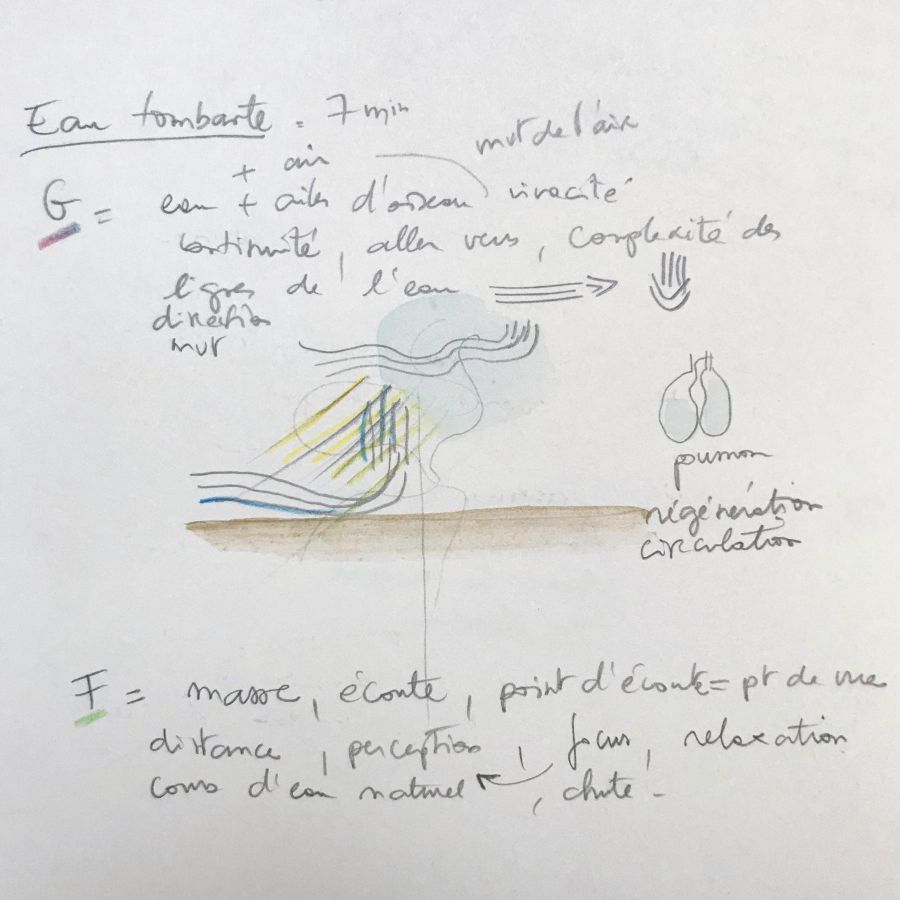 Eau tombante = 7 min
mvt de l'air
+ air
G = eau + ailes d'oiseau vivacité
continuité, aller vers, complexité des
lignes de l'eau
direction
mvt
poumon
régénération
circulation
F = masse, écoute, point d'écoute = pt de vue
distance, perception, focus, relaxation
cours d'eau naturel, chute -